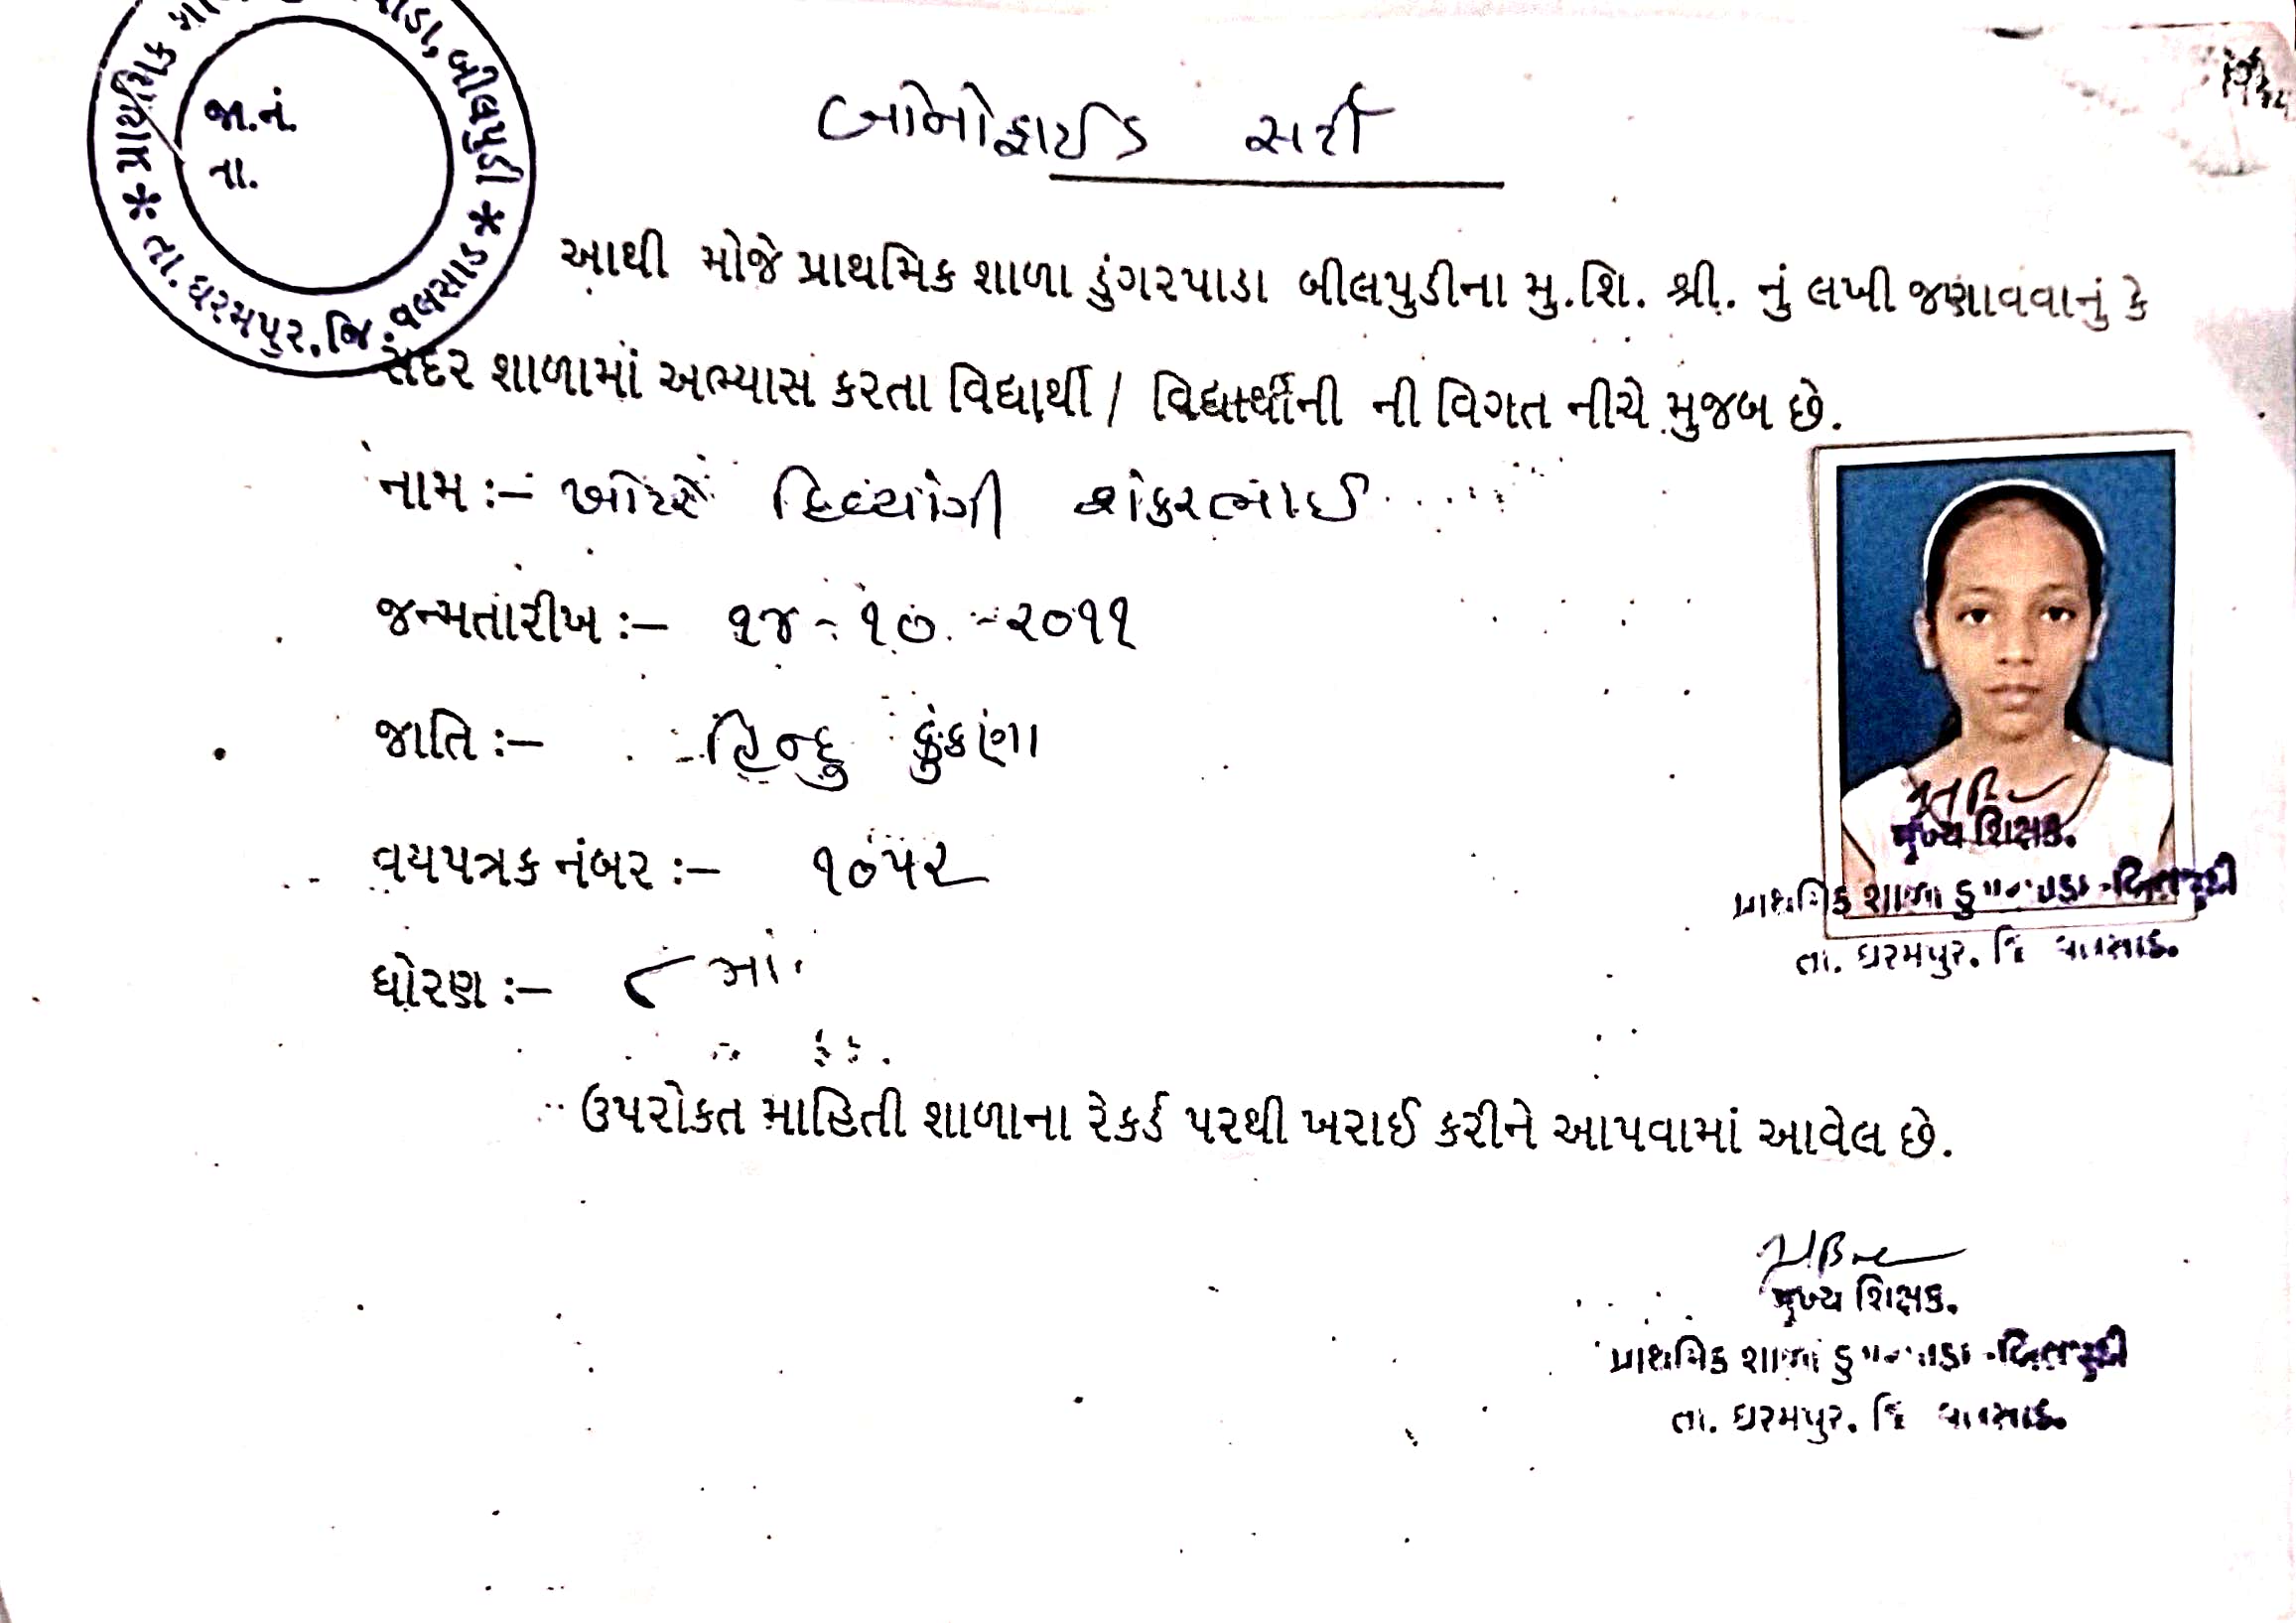 પ્રાથમિક
બીલપુડી * તા.ધરમપુર.જિ.વલસાડ *
જા.નં.
તા.
બોનોફાઈડ સર્ટી
આથી મોજે પ્રાથમિક શાળા ડુંગરપાડા બીલપુડીના મુ.શિ. શ્રી. નું લખી જણાવવાનું કે
સદર શાળામાં અભ્યાસ કરતા વિદ્યાર્થી / વિદ્યાર્થીની ની વિગત નીચે મુજબ છે.
નામ :– દિવ્યાંગી શંકરભાઈ
જન્મતારીખ :– ૧૪ - ૧૦ - ૨૦૧૧
જાતિ :– હિન્દુ કુંકણા
વયપત્રક નંબર :– ૧૦૫૨
ધોરણ :– ૮ માં
મુખ્ય શિક્ષક.
પ્રાથમિક શાળા
તા. ધરમપુર. જિ વલસાડ.
ઉપરોકત માહિતી શાળાના રેકર્ડ પરથી ખરાઈ કરીને આપવામાં આવેલ છે.
મુખ્ય શિક્ષક.
પ્રાથમિક શાળા
તા. ધરમપુર. જિ વલસાડ.